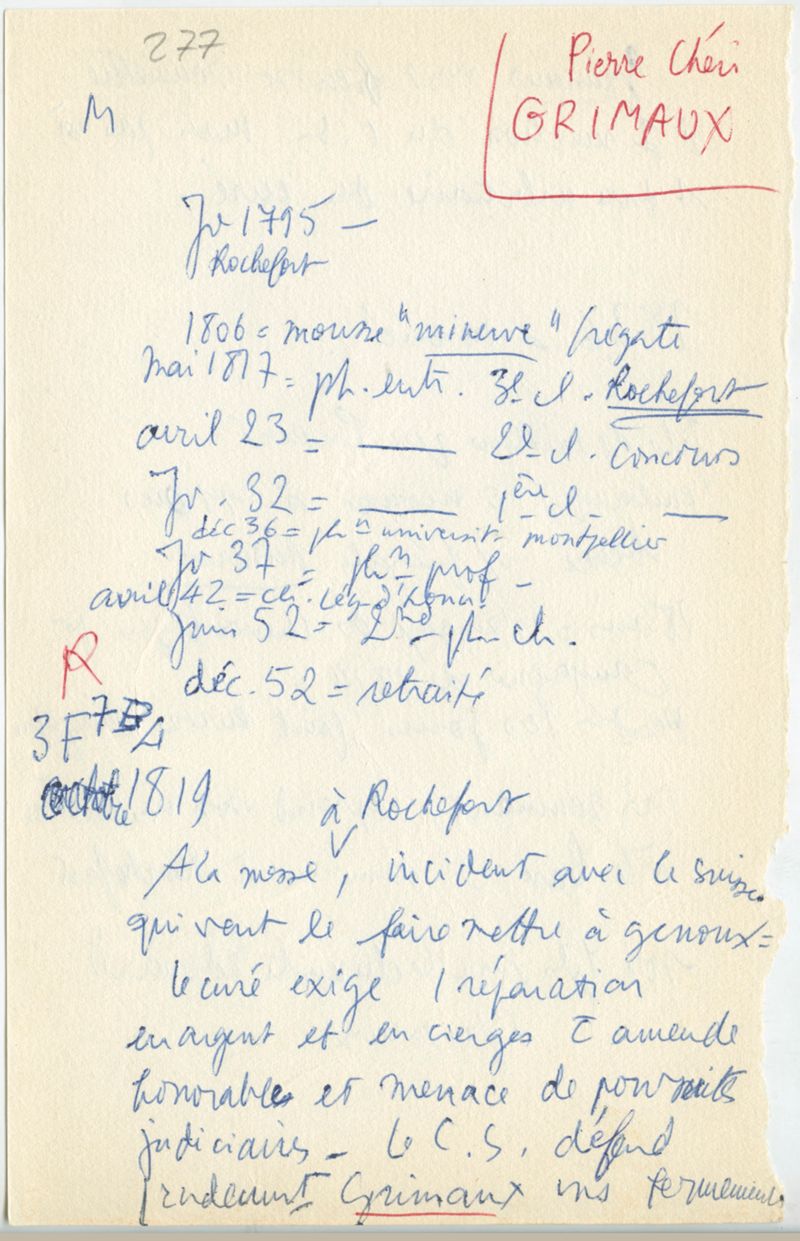 277
Pierre Chéri
GRIMAUX
M
Jr 1795 –
Rochefort
1806 = mousse "minerve" frégate
Mai 1817 = ph. entr. 3e cl. Rochefort
avril 23 = —— 2e cl. concours
Jr. 32 = —— 1ère cl. ——
déc 36 = phn université montpellier
Jr 37 = phn prof –
avril 42 = ch. Lég. d'honn.
Juin 52 = 2nd ph. ch.
déc. 52 = retraité
R
3F 7B 4
octobre 1819
à Rochefort
A la messe, incident avec le suisse
qui veut le faire mettre à genoux =
le curé exige 1 réparation
en argent et en cierges c̄ amende
honorable et menace de poursuites
judiciaires – Le C.S. défend
Grimaux fermement